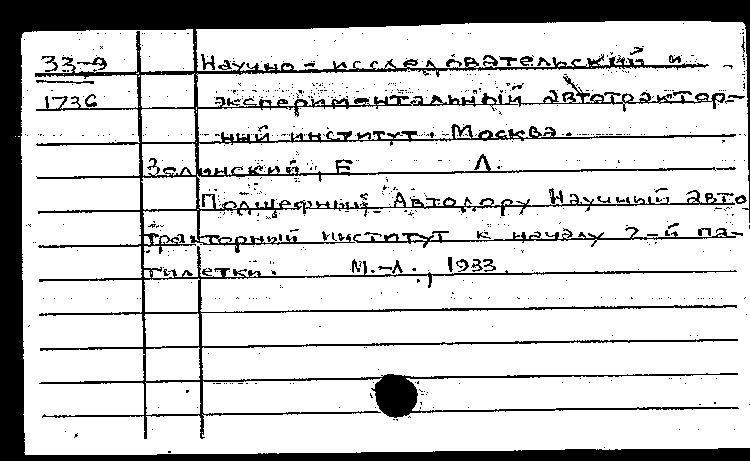 33-9 Научно-исследовательский и
1736 экспериментальный автотрактор-
ный институт. Москва.
Зелинский, Е Л.
Подшефный Автодору Научный авто
тракторный институт к началу 2-й пя-
тилетки. М.-Л., 1933.